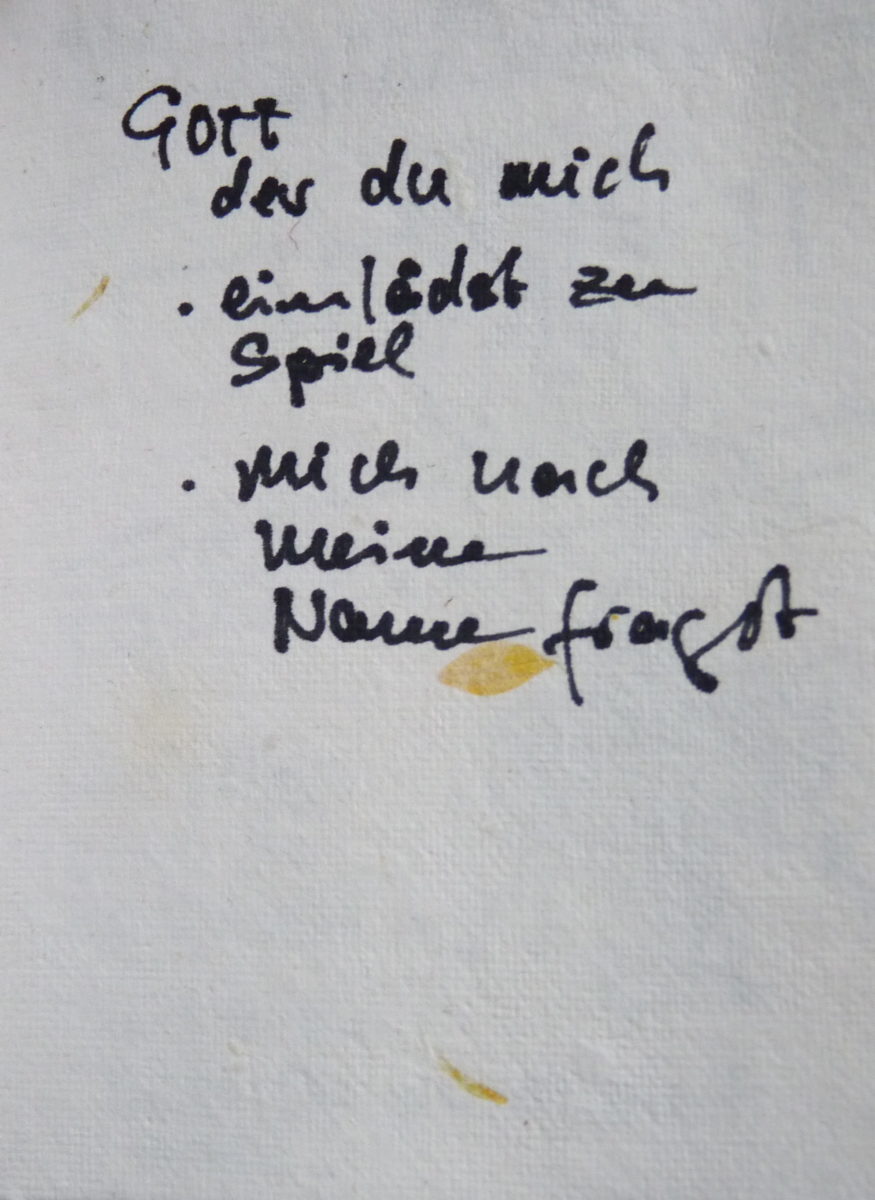 Gott
der du mich
· einlädst zum
Spiel
· mich nach
meinem
Namen fragst